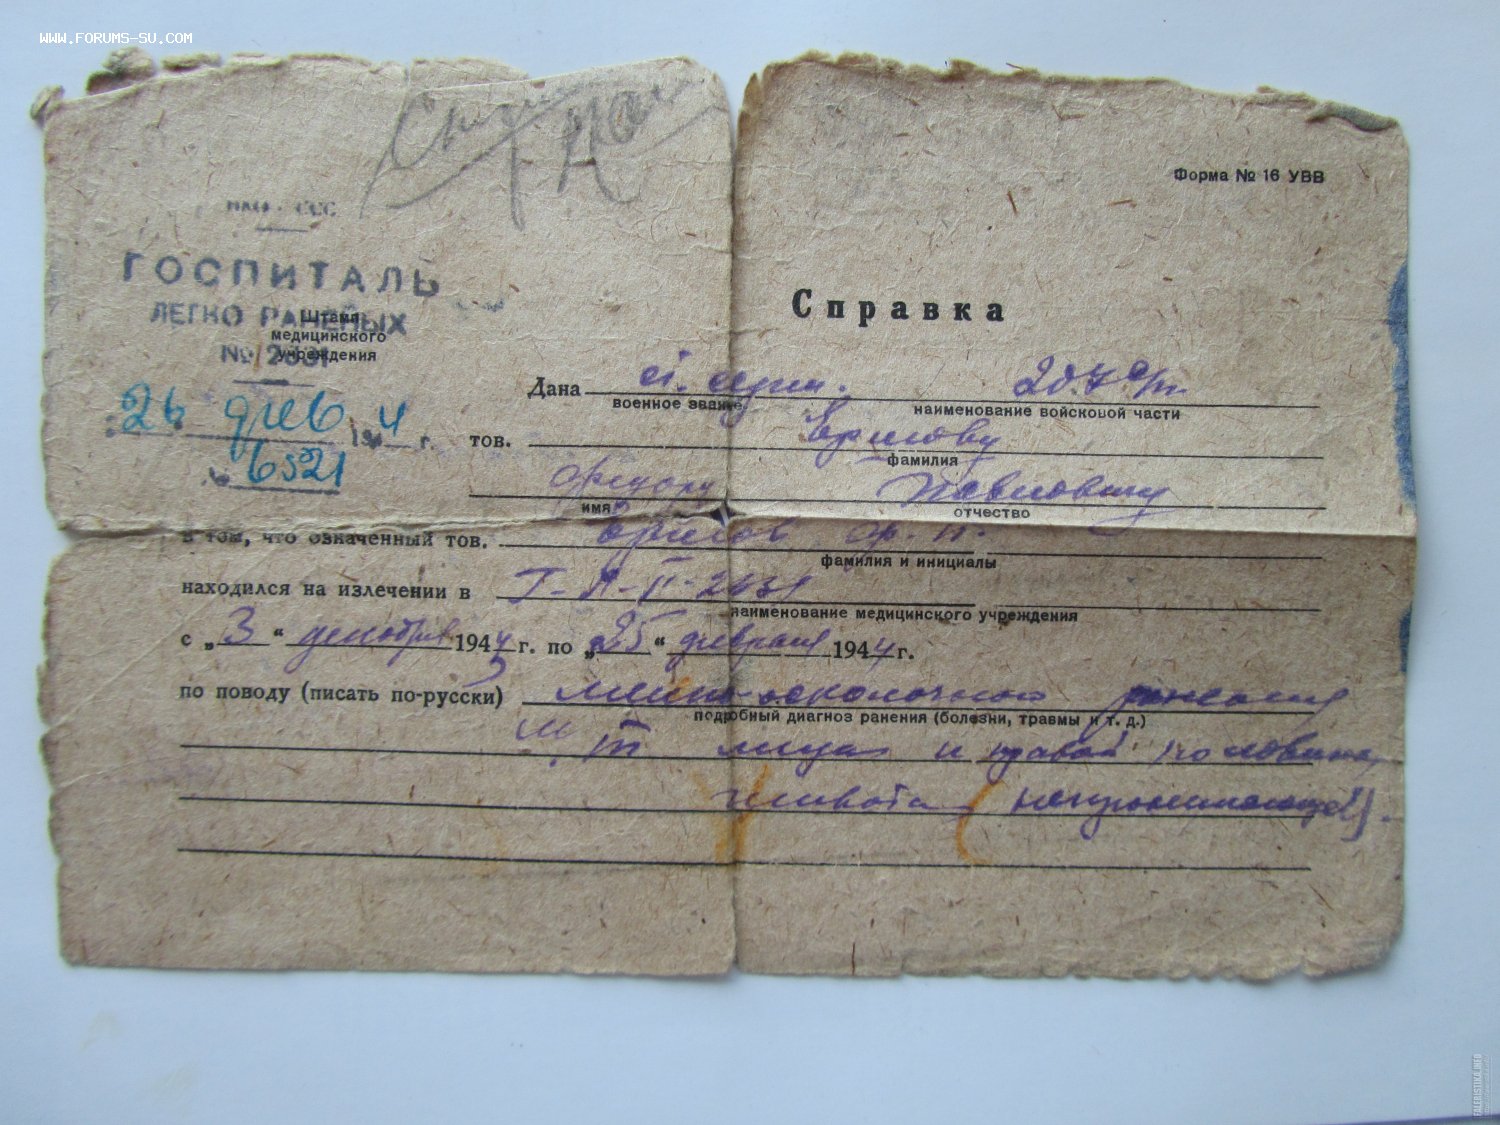 WWW.FORUMS-SU.COM
Форма № 16 УВВ
ГОСПИТАЛЬ
ЛЕГКО РАНЕНЫХ
Штамп
медицинского
учреждения
№
26 фев 194 4 г.
№ 6521
Справка
Дана ст. серж.
военное звание
наименование войсковой части
тов. Ермову
фамилия
Федору Павловичу
имя отчество
в том, что означенный тов. Ф. П.
фамилия и инициалы
находился на излечении в
наименование медицинского учреждения
с „3“ декабря 194 г. по „25“ февраля 1944 г.
по поводу (писать по-русски) минно-осколочного ранения
подробный диагноз ранения (болезни, травмы и т. д.)
лица и правой половины
живота (непроникающее).
FALERISTIKA.INFO